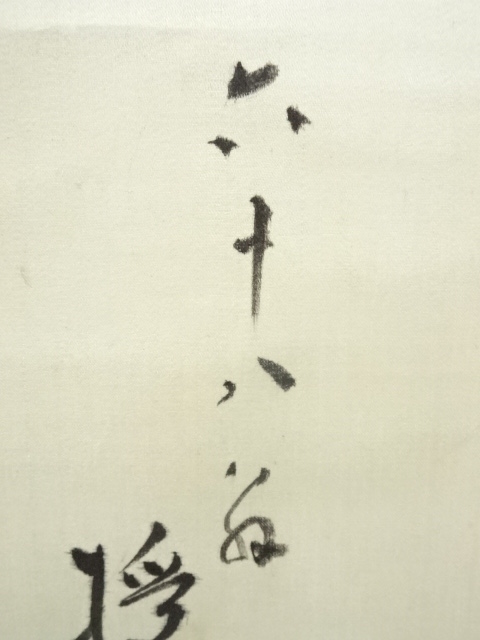 六十八翁